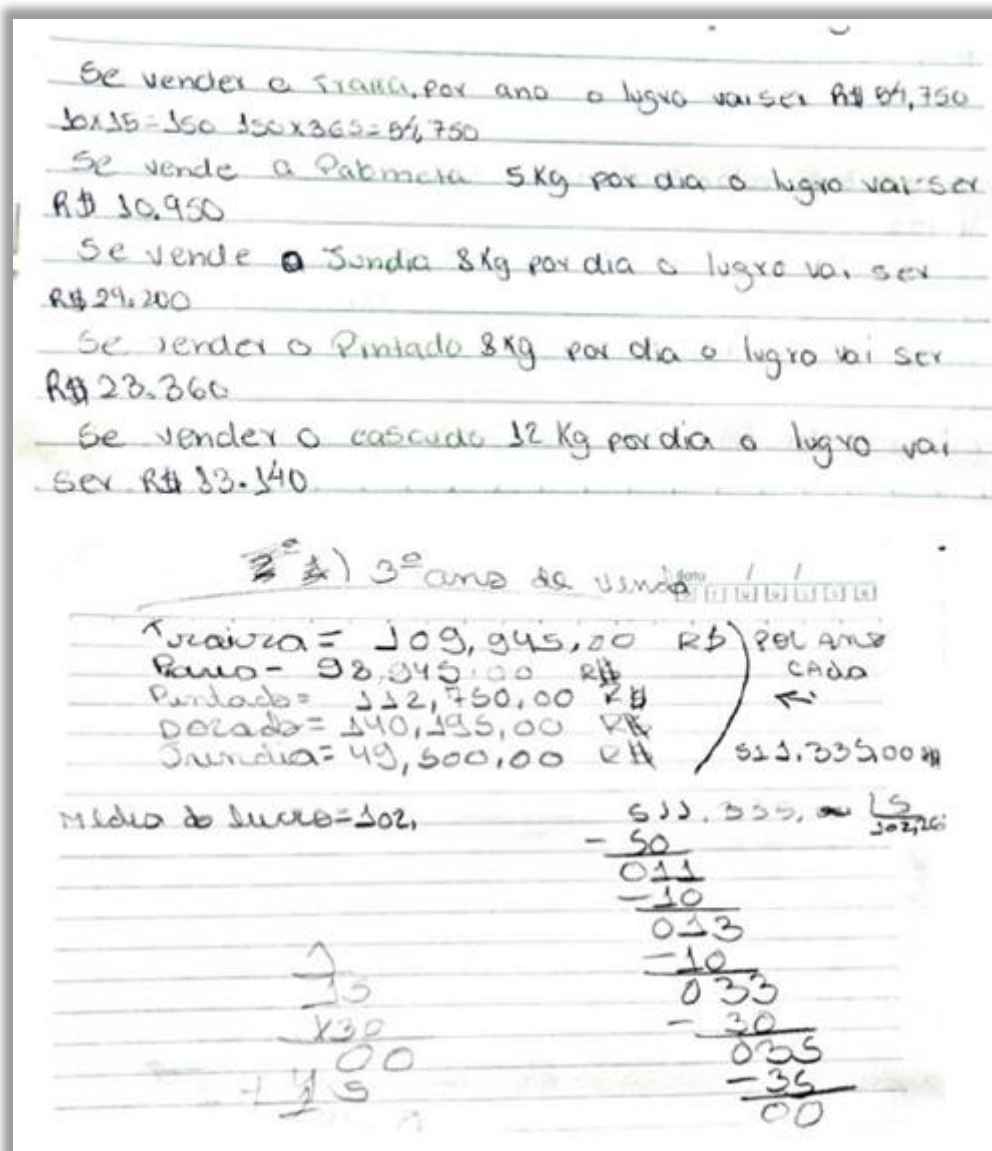 Se vender a Traíra, por ano o lugro vai ser R$ 54,750
10x15=150 150x365=54,750
Se vende a Pabmeta 5Kg por dia o lugro vai ser
R$ 10.950
Se vende o Jundia 8Kg por dia o lugro vai ser
R$ 29.200
Se vender o Pintado 8Kg por dia o lugro vai ser
R$ 23.360
Se vender o cascudo 12 Kg por dia o lugro vai
ser R$ 13.140
3º ano de venda
Traíra = 109,945,00 R$ POR ANO
98,945,00 R$ CADA
Pintado = 112,750,00 R$ ←
DORADO = 140,195,00 R$
Jundia = 49,500,00 R$ 511.335,00 R$
Média do Lucro = 102,
511.335, 5
- 50 102,26
011
- 10
013
- 10
033
- 30
035
- 35
00
15
x30
00
+ 45